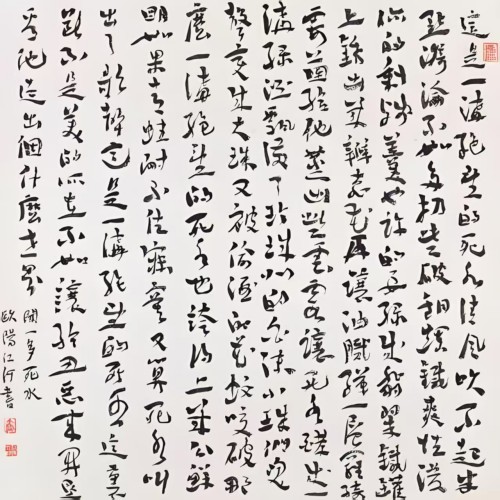 這是一溝絕望的死水清風吹不起半
點漪淪不如多扔些破銅爛鐵爽性潑
你的剩殘羹也许的要綠成翡翠鐵罐
上銹出幾瓣桃花再讓油膩織一層羅綺
霉菌給他蒸出些雲霞讓死水酵成一
溝綠酒飄滿了珍珠似的白沫小珠們笑
聲變成大珠又被偷酒的花蚊咬破那
麼一溝絕望的死水也誇得上幾分鮮
明如果青蛙耐不住寂寞又算死水叫
出了歌聲這是一溝絕望的死水這裏
斷不是美的所在不如讓給丑惡來開墾
看他造出個什麼世界
聞一多死水
歐陽江河書